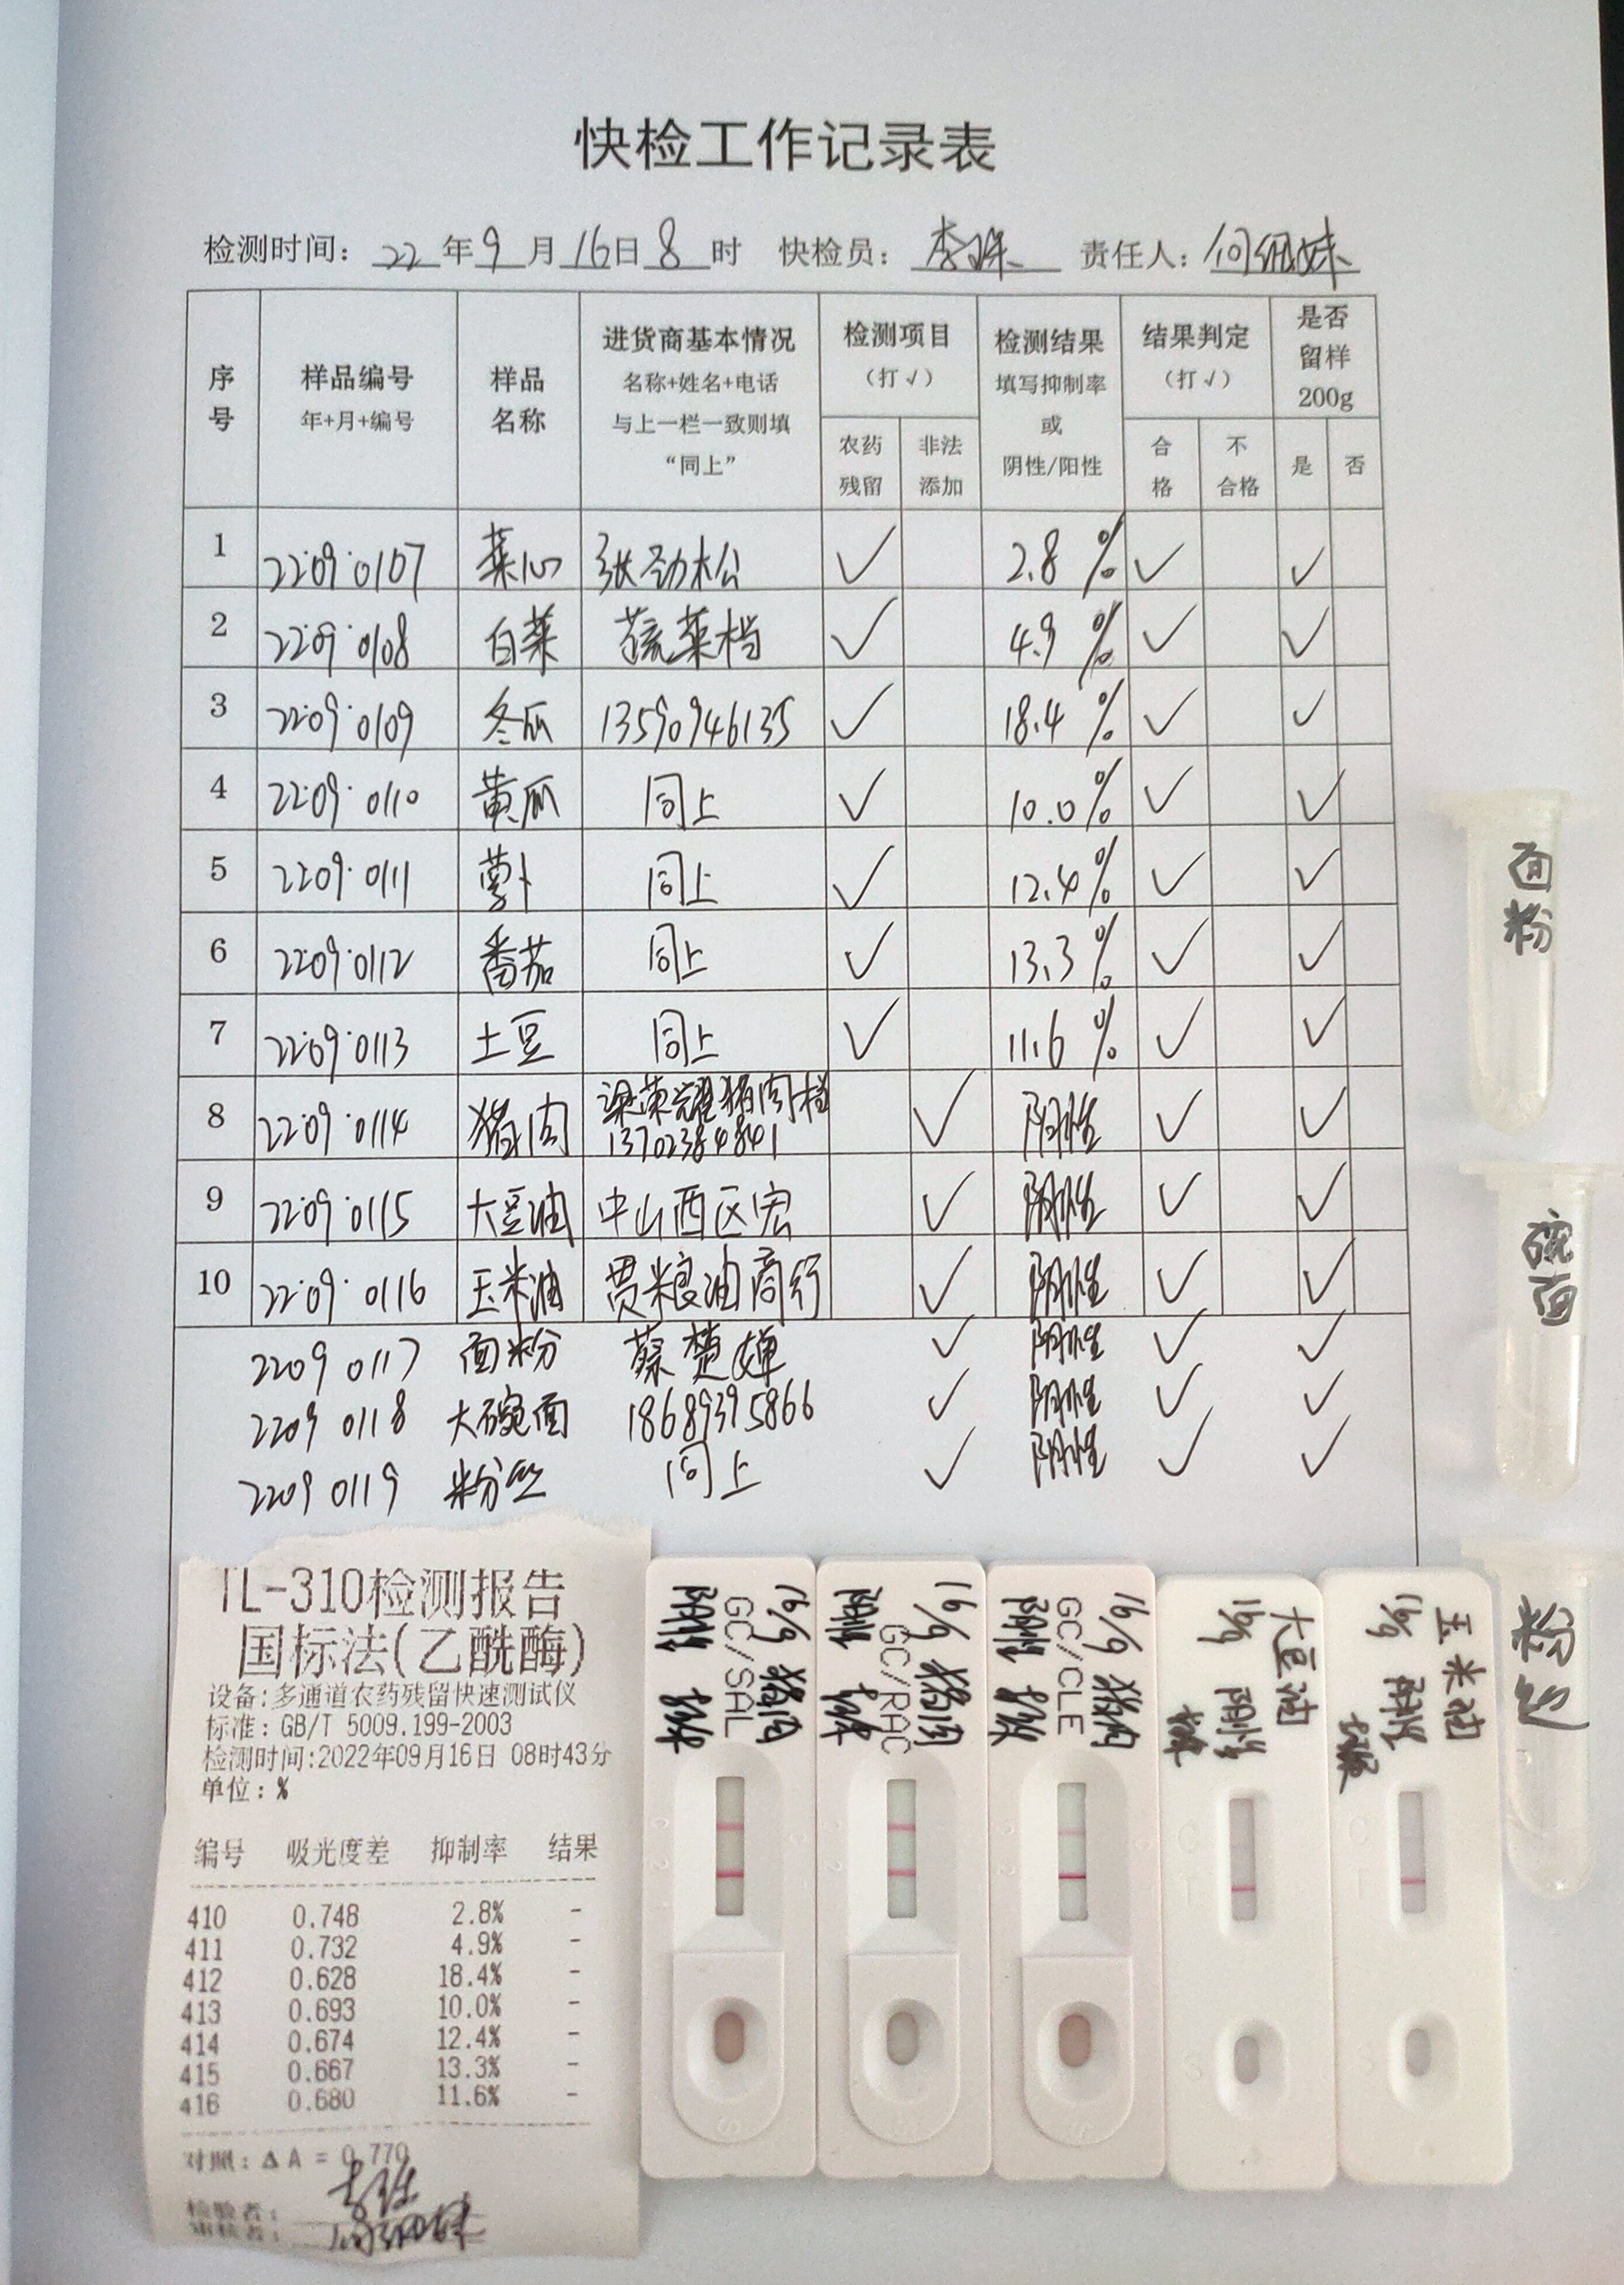 快检工作记录表
检测时间：22年9月16日8时 快检员：李珠 责任人：何细妹
序号 样品编号 年+月+编号 样品名称 进货商基本情况 名称+姓名+电话 与上一栏一致则填“同上” 检测项目（打√） 农药残留 非法添加 检测结果 填写抑制率或阴性/阳性 结果判定（打√） 合格 不合格 是否留样200g 是 否
1 2209·0107 菜心 张劲松 √ 2.8% √ √
2 2209·0108 白菜 蔬菜档 √ 4.9% √ √
3 2209·0109 冬瓜 13590946135 √ 18.4% √ √
4 2209·0110 黄瓜 同上 √ 10.0% √ √
5 2209·0111 萝卜 同上 √ 12.4% √ √
6 2209·0112 番茄 同上 √ 13.3% √ √
7 2209·0113 土豆 同上 √ 11.6% √ √
8 2209·0114 猪肉 梁荣耀猪肉档 13702384841 √ 阴性 √ √
9 2209·0115 大豆油 中山西区宏 √ 阴性 √ √
10 2209·0116 玉米油 贾粮油商行 √ 阴性 √ √
2209 0117 面粉 蔡楚婵 √ 阴性 √ √
2209 0118 大碗面 18689395866 √ 阴性 √ √
2209 0119 粉丝 同上 √ 阴性 √ √
面粉
碗面
粉丝
TL-310检测报告
国标法(乙酰酶)
设备:多通道农药残留快速测试仪
标准: GB/T 5009.199-2003
检测时间:2022年09月16日 08时43分
单位: %
编号 吸光度差 抑制率 结果
410 0.748 2.8% -
411 0.732 4.9% -
412 0.628 18.4% -
413 0.693 10.0% -
414 0.674 12.4% -
415 0.667 13.3% -
416 0.680 11.6% -
对照: ΔA = 0.770
检验者:
审核者:
16/9 猪肉
GC/SAL
阴性 李珠
16/9 猪肉
GC/RAC
阴性 李珠
16/9 猪肉
GC/CLE
阴性 李珠
大豆油
16/9 阴性
李珠
玉米油
16/9 阴性
李珠